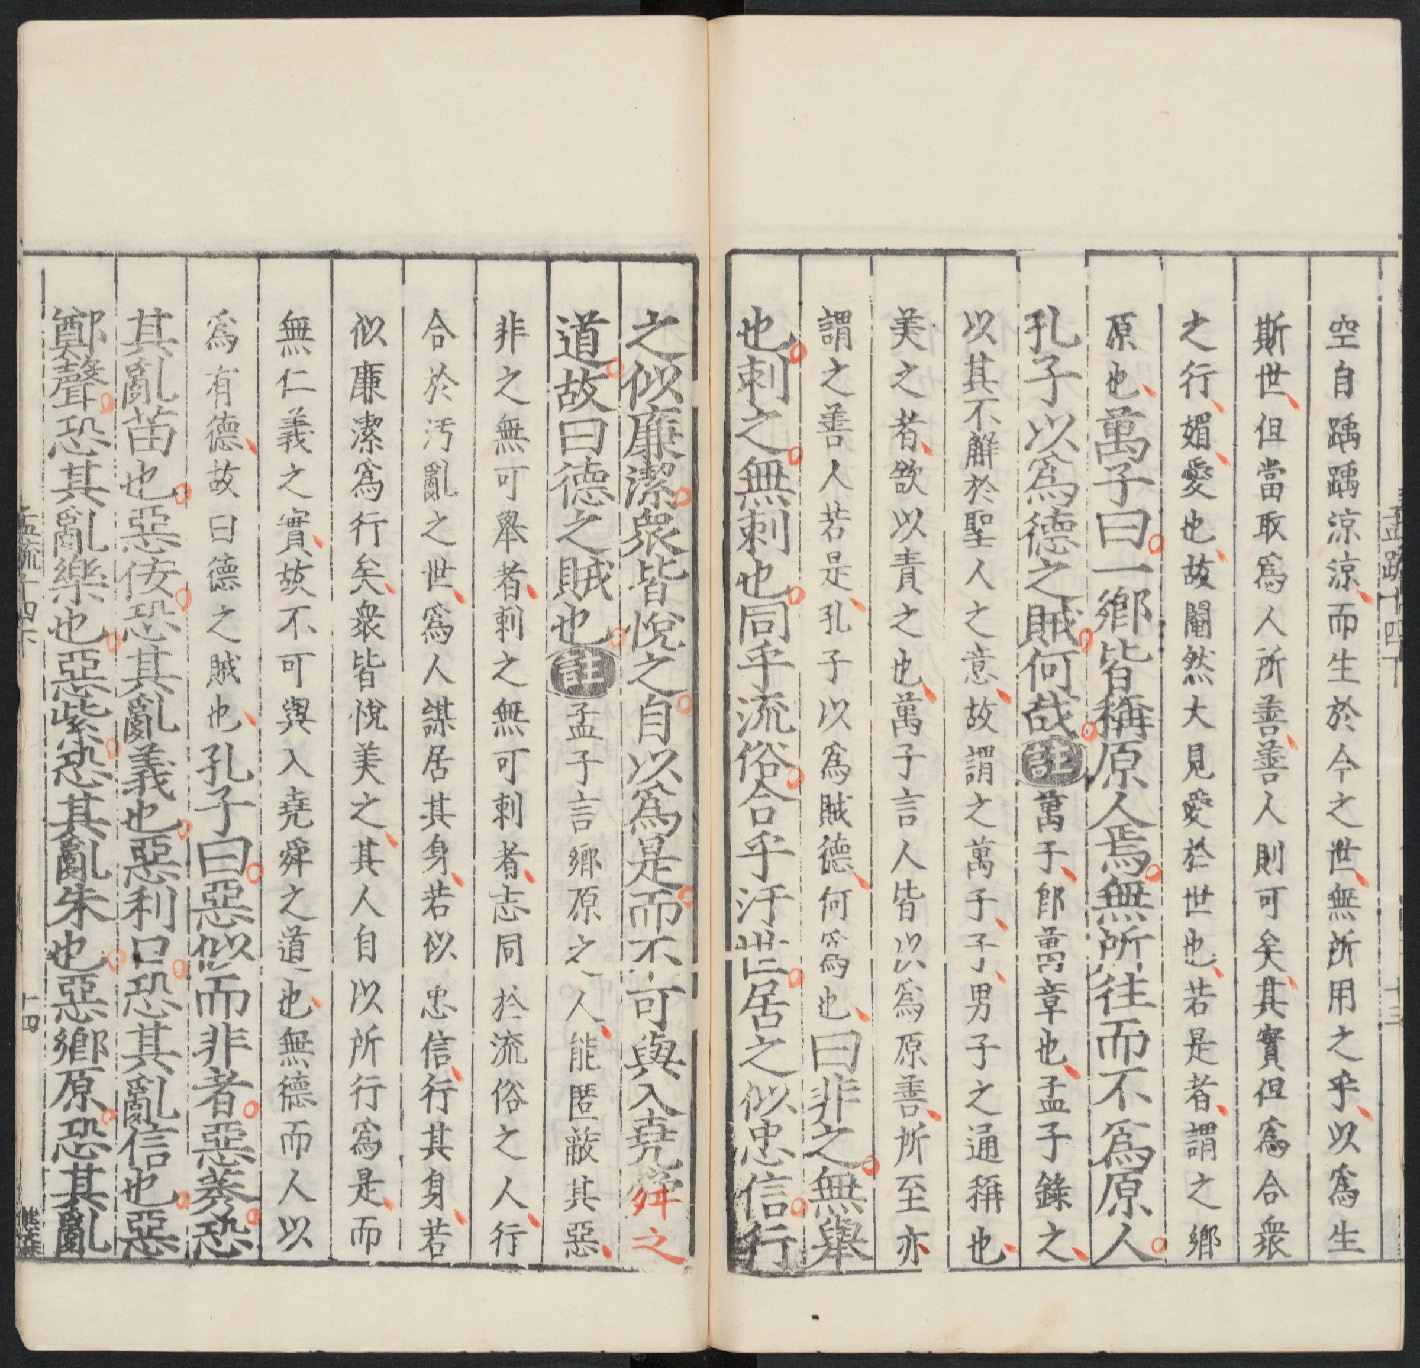 空自踽踽涼涼而生於今之世無所用之乎以爲生
斯世但當取爲人所善善人則可矣其實但爲合衆
之行媚愛也故閹然大見愛於世也若是者謂之鄉
原也萬子曰一鄉皆稱原人焉無所往而不爲原人
孔子以爲德之賊何哉註萬子卽萬章也孟子錄之
以其不解於聖人之意故謂之萬子子男子之通稱也
美之者欲以責之也萬子言人皆以爲原善所至亦
謂之善人若是孔子以爲賊德何爲也曰非之無舉
也刺之無刺也同乎流俗合乎汙世居之似忠信行
之似廉潔衆皆悅之自以爲是而不可與入堯舜之
道故曰德之賊也註孟子言鄉原之人能匿蔽其惡
非之無可舉者刺之無可刺者志同於流俗之人行
合於污亂之世爲人謀居其身若似忠信行其身若
似廉潔爲行矣衆皆悅美之其人自以所行爲是而
無仁義之實故不可與入堯舜之道也無德而人以
爲有德故曰德之賊也孔子曰惡似而非者惡莠恐
其亂苗也惡佞恐其亂義也惡利口恐其亂信也惡
鄭聲恐其亂樂也惡紫恐其亂朱也惡鄉原恐其亂
孟疏十四下
十四